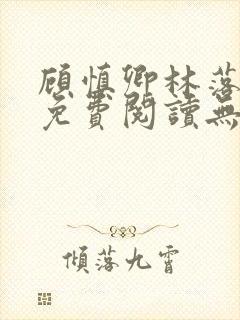 顾慎卿林落
免費閱讀無
傾落九霄